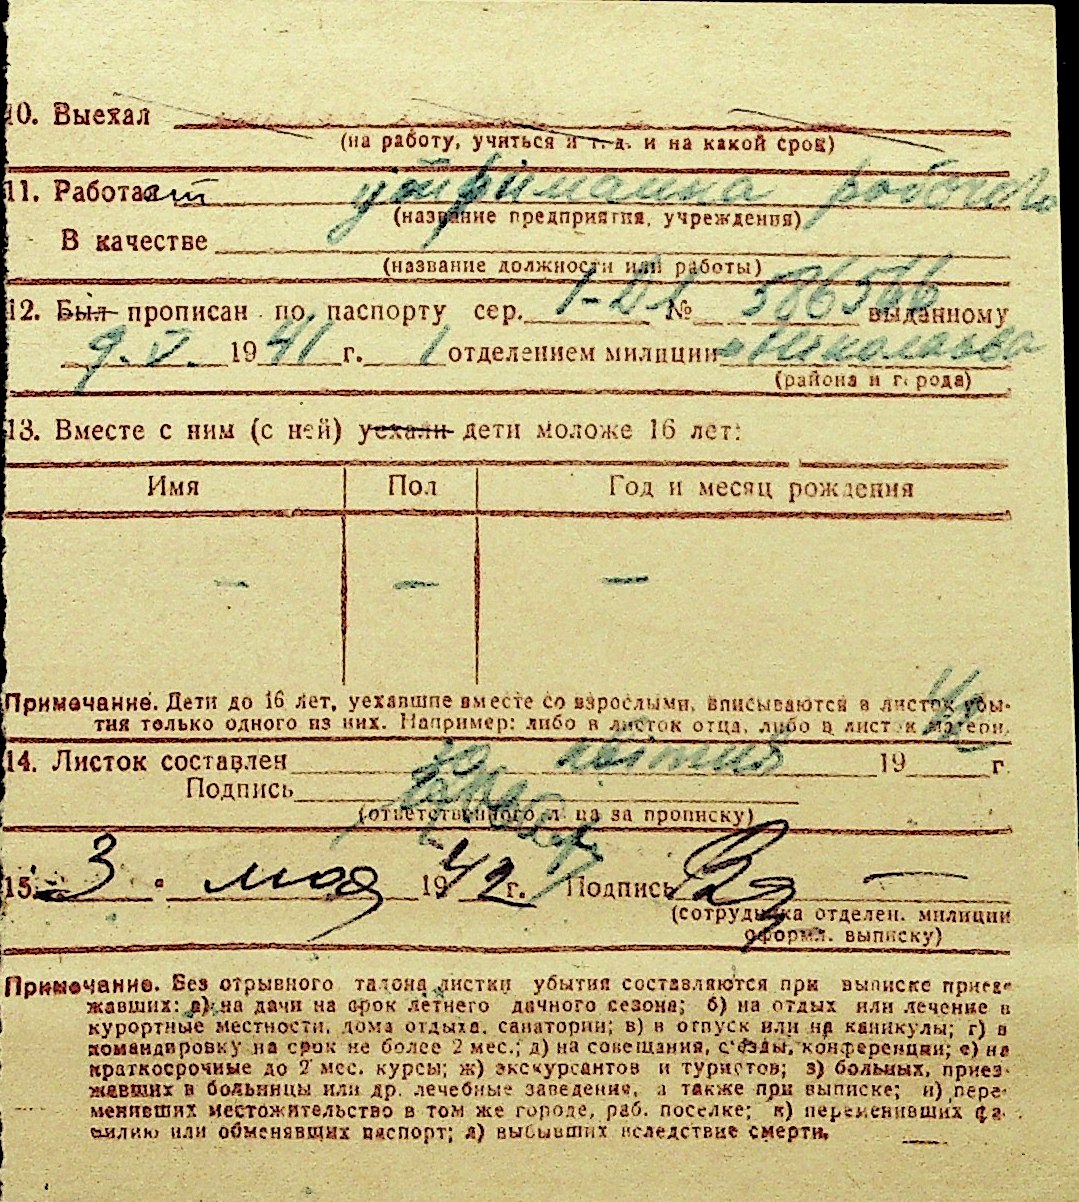 10. Выехал
(на работу, учиться и т. д. и на какой срок)
11. Работает утриманка робочого
(название предприятия, учреждения)
В качестве
(название должности или работы)
12. Был прописан по паспорту сер. 1-ДЛ № 586566 выданному
9.V. 1941 г. 1 отделением милиции Николаева
(района и города)
13. Вместе с ним (с ней) уехали дети моложе 16 лет:
Имя Пол Год и месяц рождения
— — —
Примечание. Дети до 16 лет, уехавшие вместе со взрослыми, вписываются в листок убы-
тия только одного из них. Например: либо в листок отца, либо в листок матери.
14. Листок составлен 19 г.
Подпись
(ответственного лица за прописку)
15. 3 мая 1942 г. Подпись
(сотрудника отделен. милиции
оформл. выписку)
Примечание. Без отрывного талона листки убытия составляются при выписке приез-
жавших: а) на дачи на срок летнего дачного сезона; б) на отдых или лечение в
курортные местности, дома отдыха, санатории; в) в отпуск или на каникулы; г) в
командировку на срок не более 2 мес.; д) на совещания, съезды, конференции; е) на
краткосрочные до 2 мес. курсы; ж) экскурсантов и туристов; з) больных, приез-
жавших в больницы или др. лечебные заведения, а также при выписке; и) пере-
менивших местожительство в том же городе, раб. поселке; к) переменивших фа-
милию или обменявших паспорт; л) выбывших вследствие смерти.